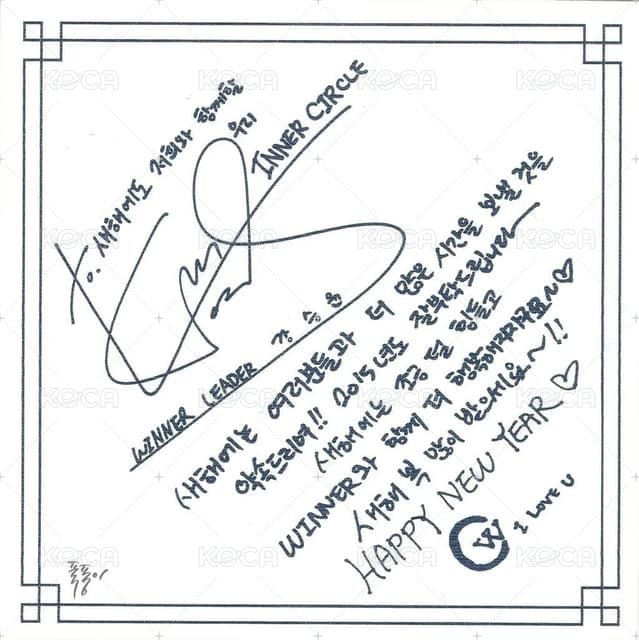 To. 새해에도 저희와 함께할
우리
INNER CIRCLE
WINNER LEADER 강승윤
새해에는 여러분들과 더 많은 시간을 보낼 것을
약속드리며!! 2015년도 잘부탁드립니다
새해에는 조금 덜 힘들고
WINNER와 함께 더 행복해지자구요~♡
새해 복 많이 받으세요~!!
HAPPY NEW YEAR ♡
W I LOVE U
KOCA